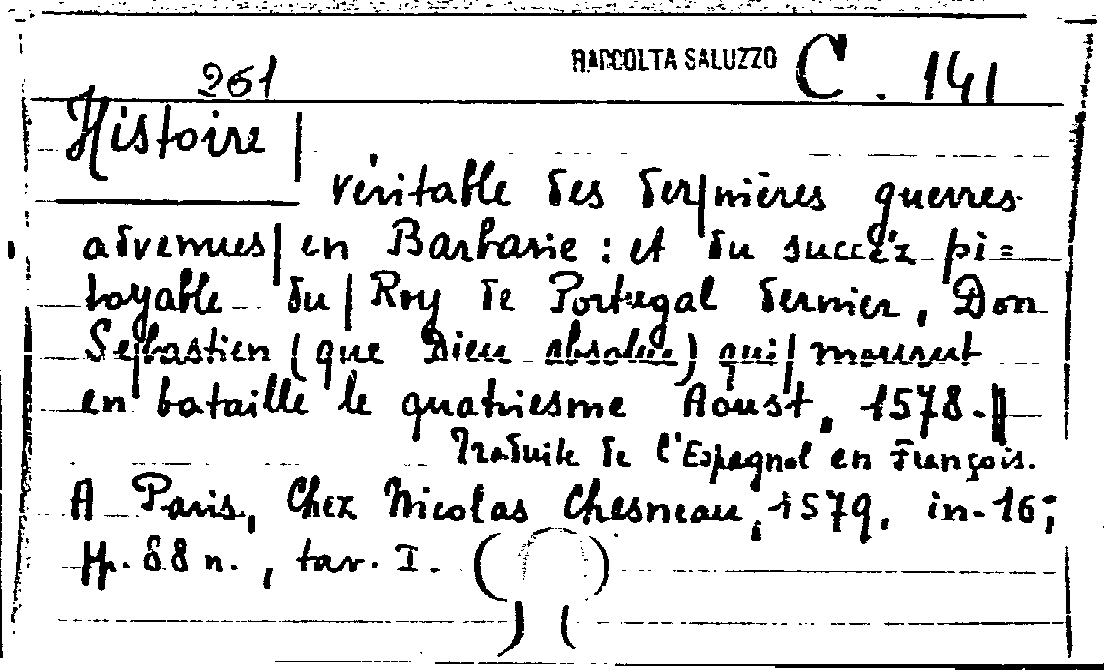 261 RACCOLTA SALUZZO C. 141
Histoire |
véritable des der|nières guerres
advenues| en Barbarie : et du succéz pi=
toyable du | Roy de Portugal dernier, Don
Sebastien (que Dieu absolue) qui| mourut
en bataille le quatriesme Aoust, 1578.||
Traduite de l'Espagnol en François.
A Paris, Chez Nicolas Chesneau, 1579. in-16;
pp. 88 n., tav. I.